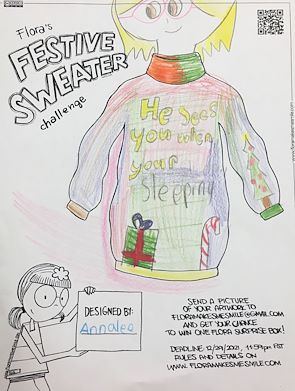 Flora's
FESTIVE
SWEATER
challenge
He Sees
you when
your
Sleeping
DESIGNED BY:
Annalee
SEND A PICTURE
OF YOUR ARTWORK TO
FLORAMAKESMESMILE@GMAIL.COM
AND GET YOUR CHANCE
TO WIN ONE FLORA SURPRISE BOX!
DEADLINE: 12/29/2021, 11:59pm PST
RULES AND DETAILS ON
WWW.FLORAMAKESMESMILE.COM
www.floramakesmesmile.com